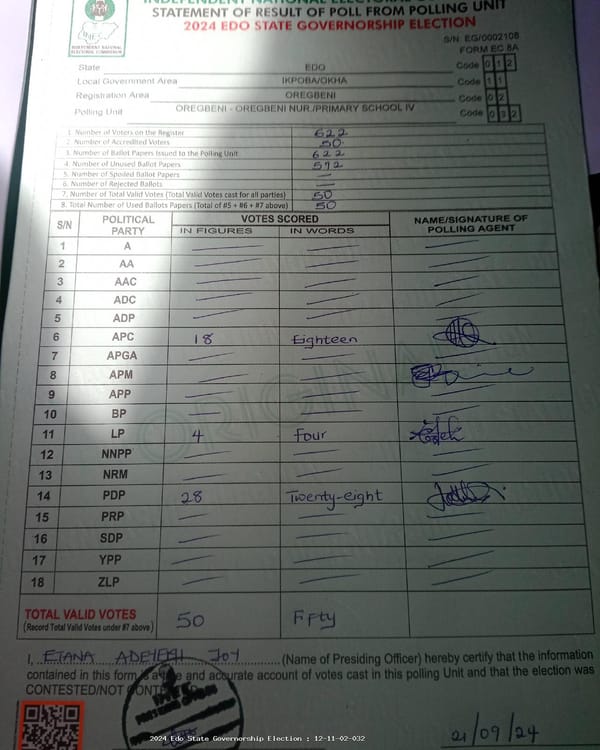 INDEPENDENT NATIONAL ELECTORAL
STATEMENT OF RESULT OF POLL FROM POLLING UNIT
2024 EDO STATE GOVERNORSHIP ELECTION
INEC
INDEPENDENT NATIONAL
ELECTORAL COMMISSION
S/N: EG/0002108
FORM EC 8A
State EDO Code 0 1 2
Local Government Area IKPOBA/OKHA Code 1 1
Registration Area OREGBENI Code 0 2
Polling Unit OREGBENI - OREGBENI NUR./PRIMARY SCHOOL IV Code 0 3 2
1. Number of Voters on the Register 622
2. Number of Accredited Voters 50
3. Number of Ballot Papers Issued to the Polling Unit 622
4. Number of Unused Ballot Papers 572
5. Number of Spoiled Ballot Papers —
6. Number of Rejected Ballots —
7. Number of Total Valid Votes (Total Valid Votes cast for all parties) 50
8. Total Number of Used Ballots Papers (Total of #5 + #6 + #7 above) 50
S/N POLITICAL PARTY VOTES SCORED NAME/SIGNATURE OF POLLING AGENT
IN FIGURES IN WORDS
1 A
2 AA
3 AAC
4 ADC
5 ADP
6 APC 18 Eighteen
7 APGA
8 APM
9 APP
10 BP
11 LP 4 Four
12 NNPP
13 NRM
14 PDP 28 Twenty-eight
15 PRP
16 SDP
17 YPP
18 ZLP
ORIGINAL
TOTAL VALID VOTES 50 Fifty
(Record Total Valid Votes under #7 above)
I, ETANA JOY (Name of Presiding Officer) hereby certify that the information
contained in this form is a true and accurate account of votes cast in this polling Unit and that the election was
CONTESTED/NOT CONTESTED
21/09/24
2024 Edo State Governorship Election : 12-11-02-032